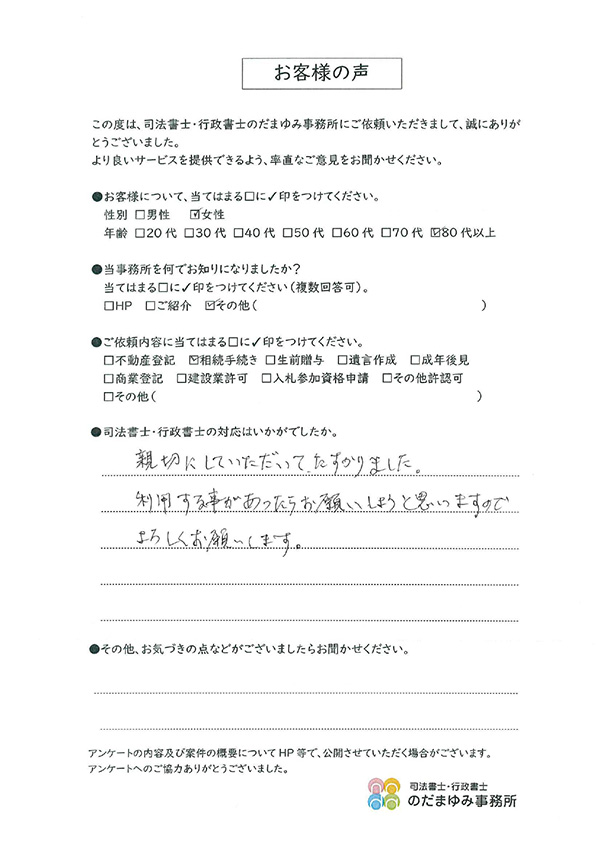 お客様の声
この度は、司法書士・行政書士のだまゆみ事務所にご依頼いただきまして、誠にありが
とうございました。
より良いサービスを提供できるよう、率直なご意見をお聞かせください。
●お客様について、当てはまる□に✓印をつけてください。
性別 □男性 ☑女性
年齢 □20代 □30代 □40代 □50代 □60代 □70代 ☑80代以上
●当事務所を何でお知りになりましたか?
当てはまる□に✓印をつけてください(複数回答可)。
□HP □ご紹介 ☑その他( )
●ご依頼内容に当てはまる□に✓印をつけてください。
□不動産登記 ☑相続手続き □生前贈与 □遺言作成 □成年後見
□商業登記 □建設業許可 □入札参加資格申請 □その他許認可
□その他( )
●司法書士・行政書士の対応はいかがでしたか。
親切にしていただいて、たすかりました。
利用する事があったらお願いしようと思いますので
よろしくお願いします。
●その他、お気づきの点などがございましたらお聞かせください。
アンケートの内容及び案件の概要についてHP等で、公開させていただく場合がございます。
アンケートへのご協力ありがとうございました。
司法書士・行政書士
のだまゆみ事務所